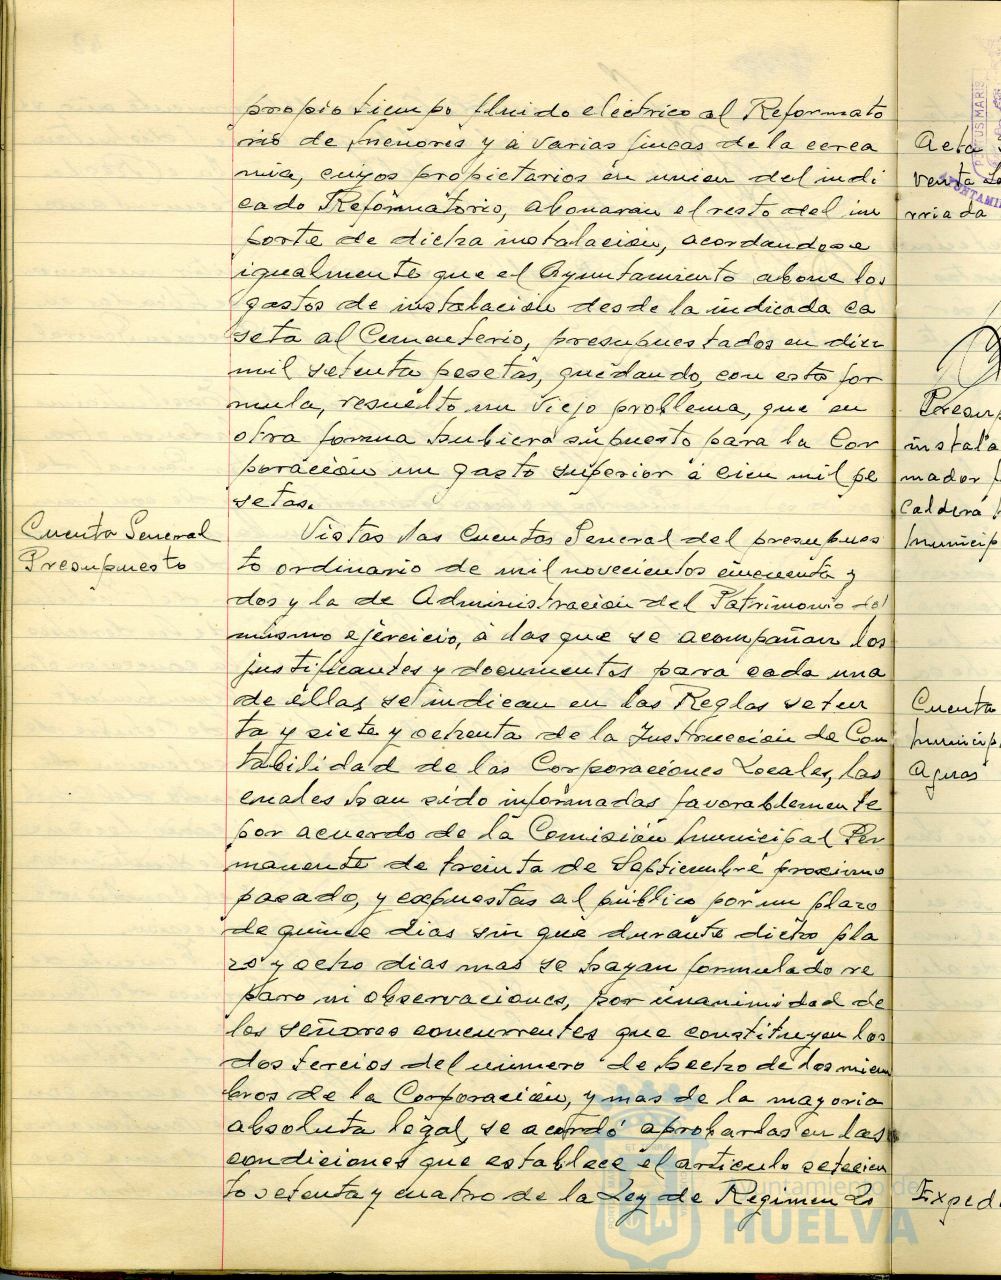 propio tiempo fluido electrico al Reformato
rio de menores y á varias fincas de la cerca
nia, cuyos propietarios en union del indi
cado Reformatorio, abonaran el resto del im
porte de dicha instalación, acordandose
igualmente que el Ayuntamiento abone los
gastos de instalación desde la indicada ca
seta al Cementerio, presupuestados en diez
mil setenta pesetas, quedando, con esta for
mula, resuelto un viejo problema, que en
otra forma hubiera supuesto para la Cor
poración un gasto superior á cien mil pe
setas.
Cuenta General
Presupuesto
Vistas las Cuentas General del presupues
to ordinario de mil novecientos cincuenta y
dos y la de Administración del Patrimonio del
mismo ejercicio, á las que se acompañan los
justificantes y documentos para cada una
de éllas se indican en las Reglas seten
ta y siete y ochenta de la Instrucción de Con
tabilidad de las Corporaciones Locales, las
cuales han sido informadas favorablemente
por acuerdo de la Comisión municipal Per
manente de treinta de Septiembre proximo
pasado, y expuestas al público por un plazo
de quince dias sin que durante dicho pla
zo y ocho dias mas se hayan formulado re
paro ni observaciones, por unanimidad de
los señores concurrentes que constituyen los
dos tercios del número de hecho de los miem
bros de la Corporación, y mas de la mayoria
absoluta legal, se acordó aprobarlas en las
condiciones que establece el articulo setecien
tos setenta y cuatro de la Ley de Regimen Lo
Acta
venta
rriada
Presup
instala
mador
caldera
municip
Cuenta
municip
Aguas
Exped
PORTUS MARIS
AYUNTAMI
Ayuntamiento de
HUELVA